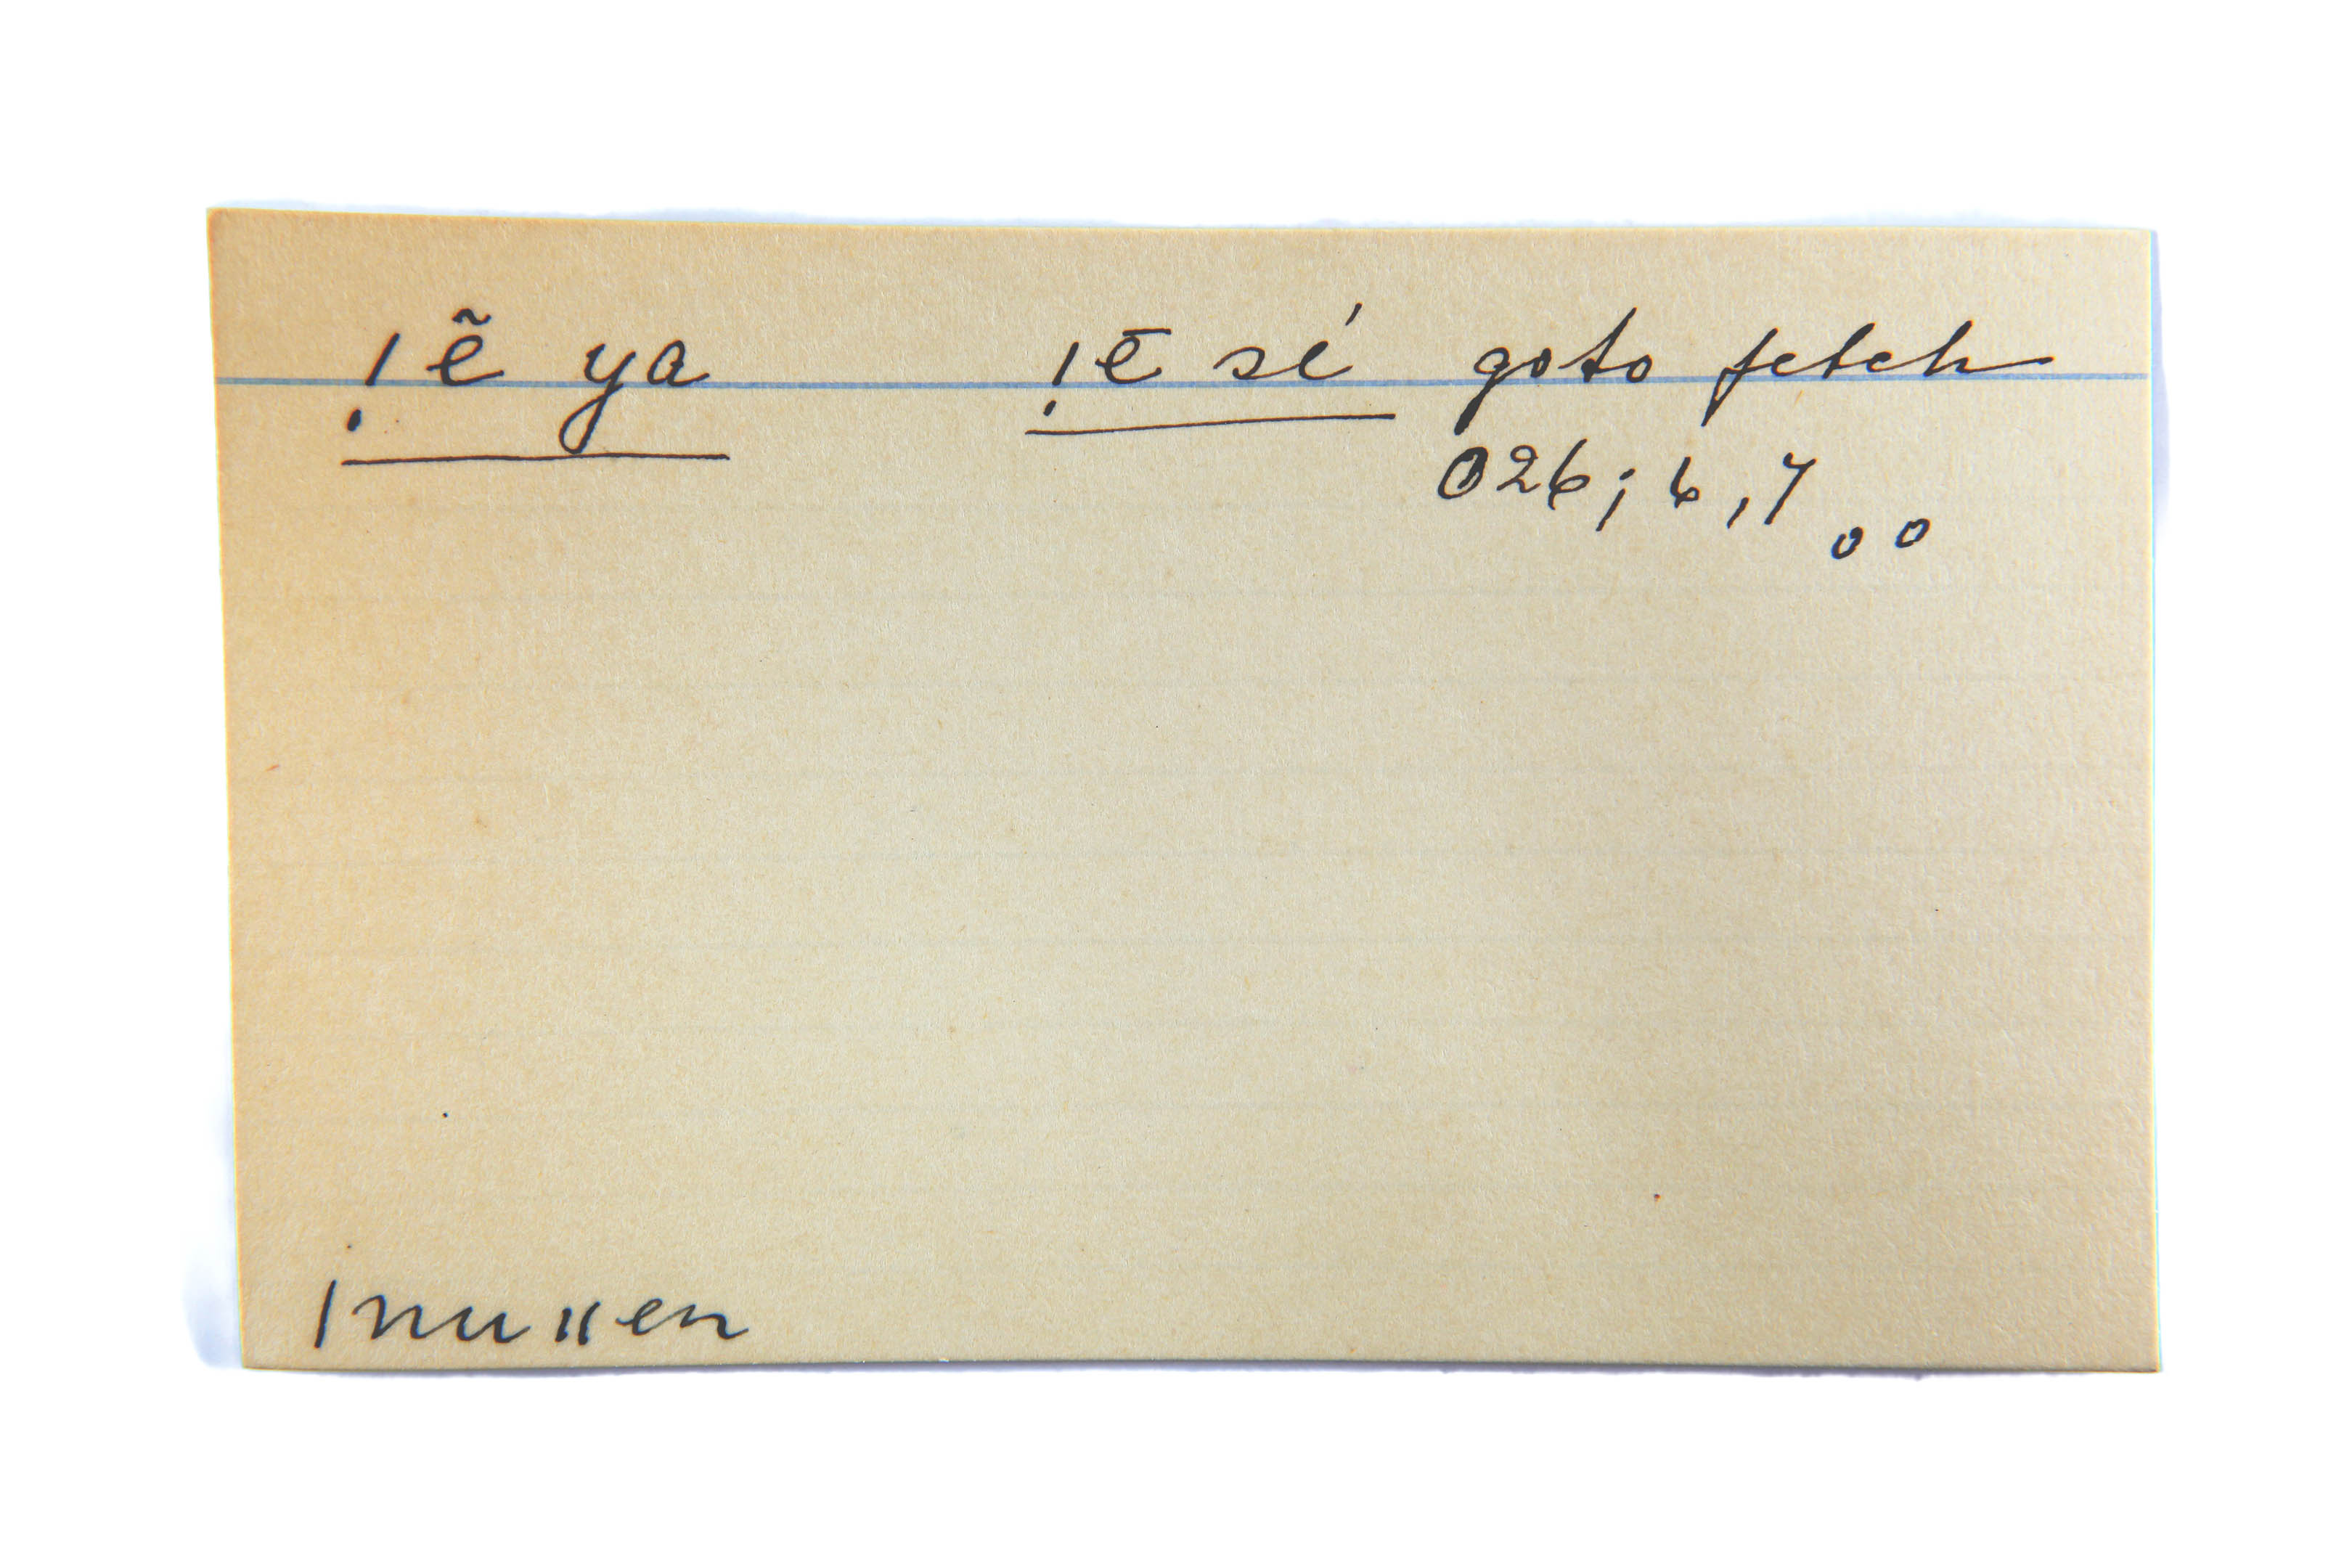 !ẽ ya !ē sé go to fetch
026; 6, 7 o o
|nu||en